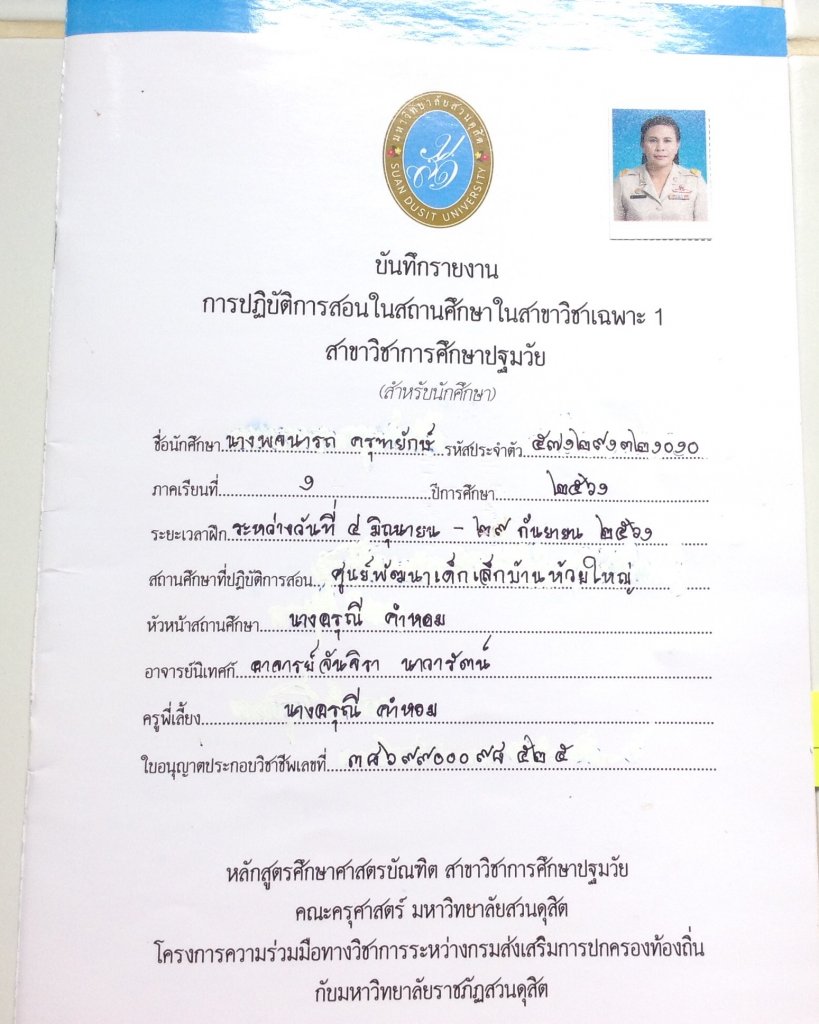 มหาวิทยาลัยสวนดุสิต
SUAN DUSIT UNIVERSITY
บันทึกรายงาน
การปฏิบัติการสอนในสถานศึกษาในสาขาวิชาเฉพาะ 1
สาขาวิชาการศึกษาปฐมวัย
(สำหรับนักศึกษา)
ชื่อนักศึกษา นางพจนารถ ครุฑยักษ์ รหัสประจำตัว ๕๗๑๒๙๑๓๒๑๐๑๐
ภาคเรียนที่ ๑ ปีการศึกษา ๒๕๖๑
ระยะเวลาฝึก ระหว่างวันที่ ๔ มิถุนายน - ๒๙ กันยายน ๒๕๖๑
สถานศึกษาที่ปฏิบัติการสอน ศูนย์พัฒนาเด็กเล็กบ้านห้วยใหญ่
หัวหน้าสถานศึกษา นางดรุณี คำหอม
อาจารย์นิเทศก์ อาจารย์จันจิรา นาวารัตน์
ครูพี่เลี้ยง นางดรุณี คำหอม
ใบอนุญาตประกอบวิชาชีพเลขที่ ๓๘๖๙๙๐๐๐๙๘๕๒๕
หลักสูตรศึกษาศาสตรบัณฑิต สาขาวิชาการศึกษาปฐมวัย
คณะครุศาสตร์ มหาวิทยาลัยสวนดุสิต
โครงการความร่วมมือทางวิชาการระหว่างกรมส่งเสริมการปกครองท้องถิ่น
กับมหาวิทยาลัยราชภัฏสวนดุสิต